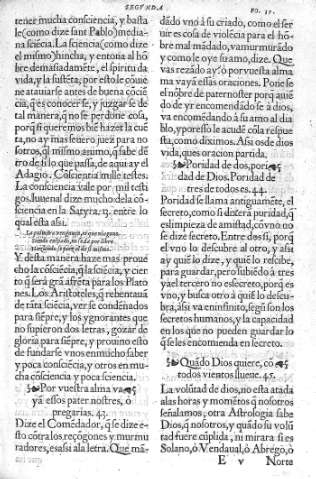 SEGVNDA
FO. 35.
tener mucha consciencia, y basta
le (como dize sant Pablo) media-
na sciẽcia. La sciencia (como dize
el mismo) hincha, y entona al hõ
bre demasiadamẽte, el spiritu da
vida, y la sustẽta, por esto le cõuie
ne atauiarse antes de buena cõciẽ
cia, q̃ es conocer se, y juzgar se de
tal manera, q̃ no se perdone cosa,
porq̃ si queremos biẽ hazer la cuẽ
ta, no ay mas seuero juez para no
sotros, q̃l mismo animo, q̃ sabe dẽ
tro de si lo que passa, de aqui ay el
Adagio. Cõscientia mille testes.
La consciencia vale por mil testi
gos. Iuuenal dize mucho dela cõ-
sciencia en la Satyra. 13. entre lo
qual esta assi.
Y desta manera haze mas proue
cho la cõsciẽcia, q̃ la sciẽcia, y cier
to q̃ serà grã afrẽta para los Plato
nes. Los Aristoteles, q̃ rebentauã
de tãta sciẽcia, ver se condenados
para siẽpre, y los ygnorantes que
no supieron dos letras, gozar de
gloria para siẽpre, y prouino esto
de fundarse vnos en mucho saber
y poca consciẽcia, y otros en mu-
cha cõsciencia y poca sciencia.
Por vuestra alma va
yã essos pater nostres, ò
pregarias. 43.
Dize el Comẽdador, q̃ se dize e-
sto cõtra los reçõgones y murmu
radores, es assi ala letra. Que mã-
dãdo vno à su criado, como el ser
uir es cosa de violẽcia para el hõm-
bre mal mãdado, va murmurãdo
y como le oye su amo, dize. Que
vas rezãdo ay? ò por vuestra alma
ma vaya essas oraciones. Ponese
el nõbre de paternoster porq̃ auiẽ
do de yr encomendãdo se à dios,
va encomendãdo à su amo al dia
blo, y por esso le acudẽ cõla respue
sta, como diximos. Assi os de dios
vida, ques oracion partida.
Poridad de dos, pori
dad de Dios. Poridad de
tres de todos es. 44.
Poridad se llama antiguamẽte, el
secreto, como si dixera puridad, q̃
es limpieza de amistad, cõ vno to
se dize secreto. Entre dos si, porq̃
el vno lo descubre al otro, y assi
ay quiẽ lo dize, y quiẽ lo rescibe,
para guardar, pero subiẽdo à tres
ya el tercero no es secreto, porq̃ es
vno, y busca otro à quiẽ lo descu-
bra, assi va en infinito, segũ son los
secretos humanos, y la capacidad
en los que no pueden guardar lo
q̃ se les encomienda en secreto.
Quãdo Dios quiere, cõ
todos vientos llueue. 45.
La volũtad de dios, no esta atada
alas horas y momẽtos q̃ nosotros
señalamos, otra Astrologia sabe
Dios, q̃ nosotros, y quãdo su volũ
tad fuere cũplida, ni mirara si es
Solano, ò Vendaual, ò Abrego, ò
E v
Norte